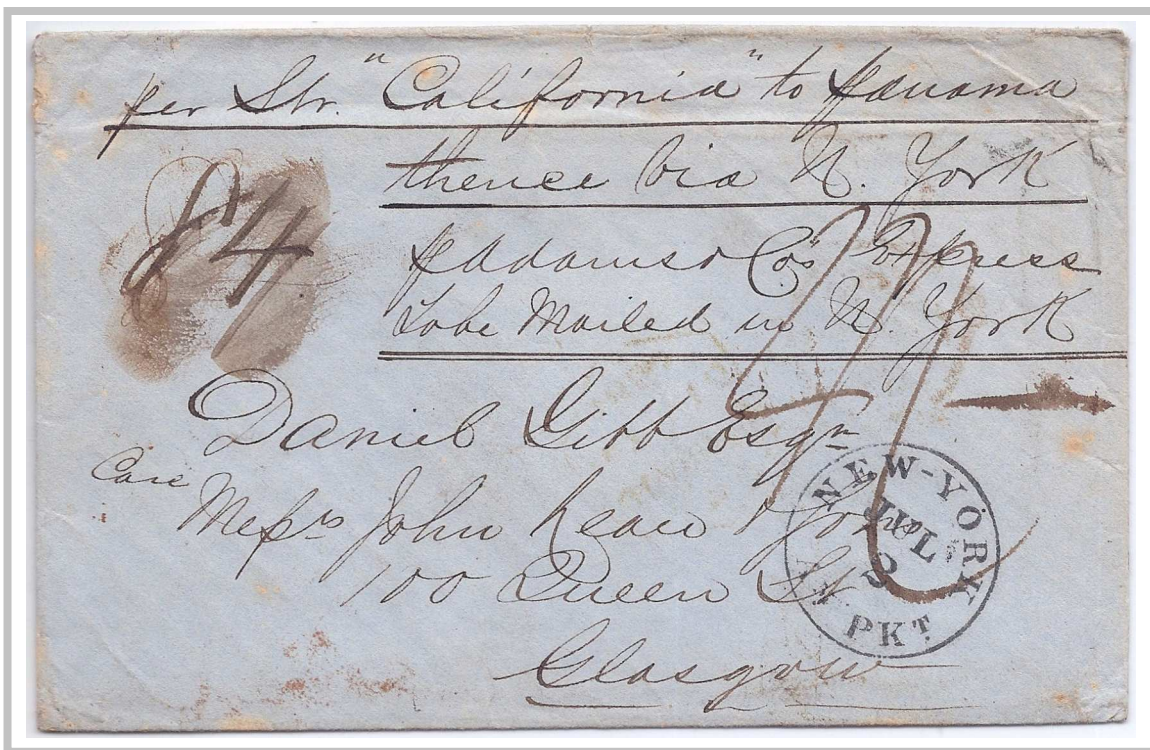 per Str. "California" to Panama
thence via N. York
p Adams & Co's Express
To be Mailed in N. York
Daniel Gibb Esqr
Care
Messrs John &
100 Queen St
Glasgow
NEW-YORK
JUL
2
PKT